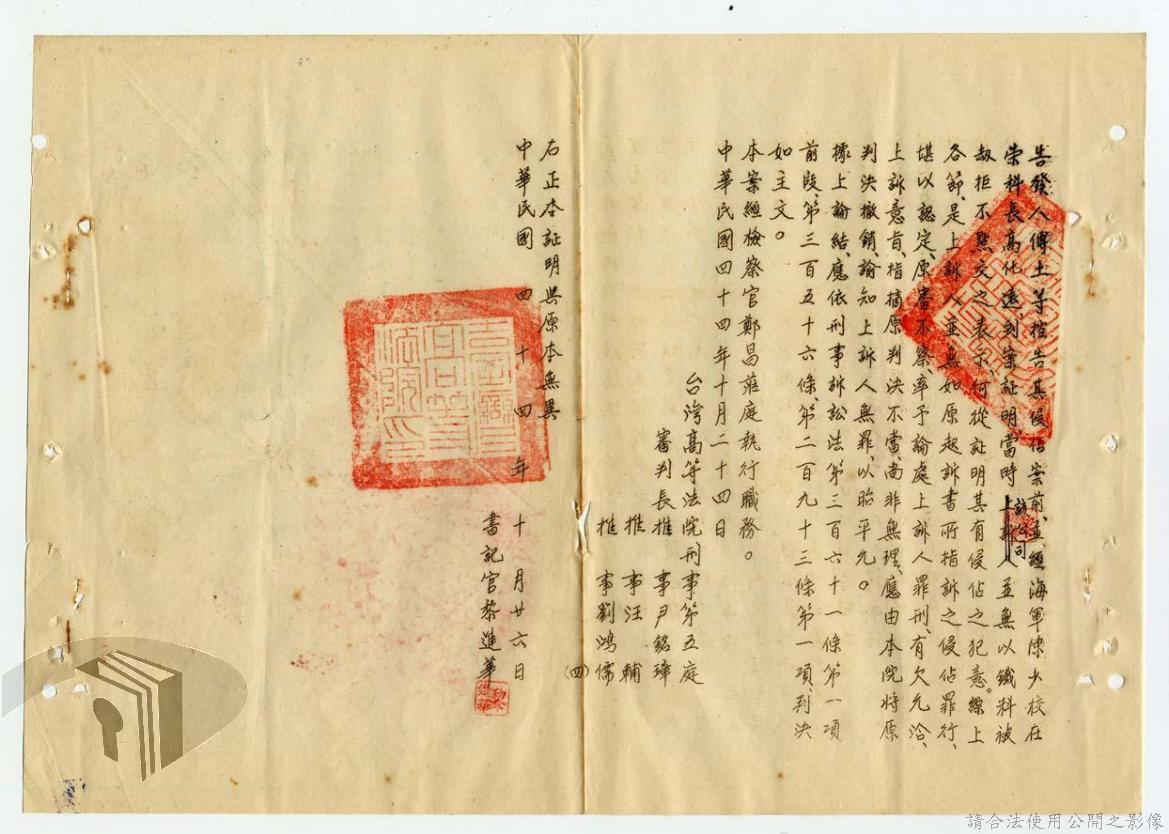 告發人傅土等控告其侵佔案前、並經海軍陳少校在
榮科長高化遠到案証明當時上訴人並無以鐵料被
訴公司
劫拒不點交之表示、何從証明其有侵佔之犯意。綜上
各節、是上訴人並無如原起訴書所指訴之侵佔罪行、
堪以認定、原審不察、率予論處上訴人罪刑、有欠允洽、
上訴意旨、指摘原判決不當、尚非無理、應由本院將原
判決撤銷、諭知上訴人無罪、以昭平允。
據上論結、應依刑事訴訟法第三百六十一條第一項
前段、第三百五十六條、第二百九十三條第一項、判決
如主文。
本案經檢察官鄭昌蓙庭執行職務。
中華民國四十四年十月二十四日
台灣高等法院刑事第五庭
審判長推事尹銘璋
推事汪輔
推事劉鴻儒
(四)
右正本証明與原本無異
中華民國四十四年十月廿六日
書記官黎進華
臺灣高等法院印
黎進華
請合法使用公開之影像